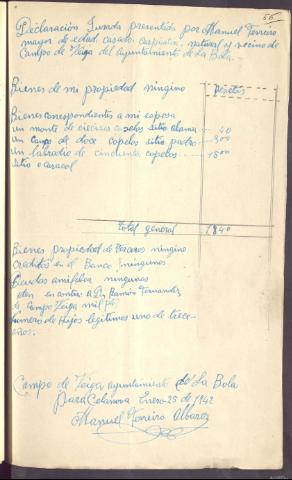 56
Declaración Jurada presentada por Manuel Ferreiro
mayor de edad casado Carpintero natural y vecino de
Campo de Veiga del Ayuntamiento de La Bola
Bienes de mi propiedad ningino
Pesetas
Bienes correspondientes a mi esposa
un monte de copelos sitio 40
un de doce copelos sitio 300
un labradio de cincuenta copelos 1500
sitio o Caracol
total general 1840
Bienes propiedad de ningino
Creditos en el Banco ningunos
Deudas ningunas
en contra a Dn Ramon Fernandez
de Campo Veiga mil Pts
numero de Hijos legitimos uno de trece
años.
Campo de Veiga ayuntamiento de La Bola
para Celanova Enero 25 de 1942
Manuel Ferreiro Alvarez